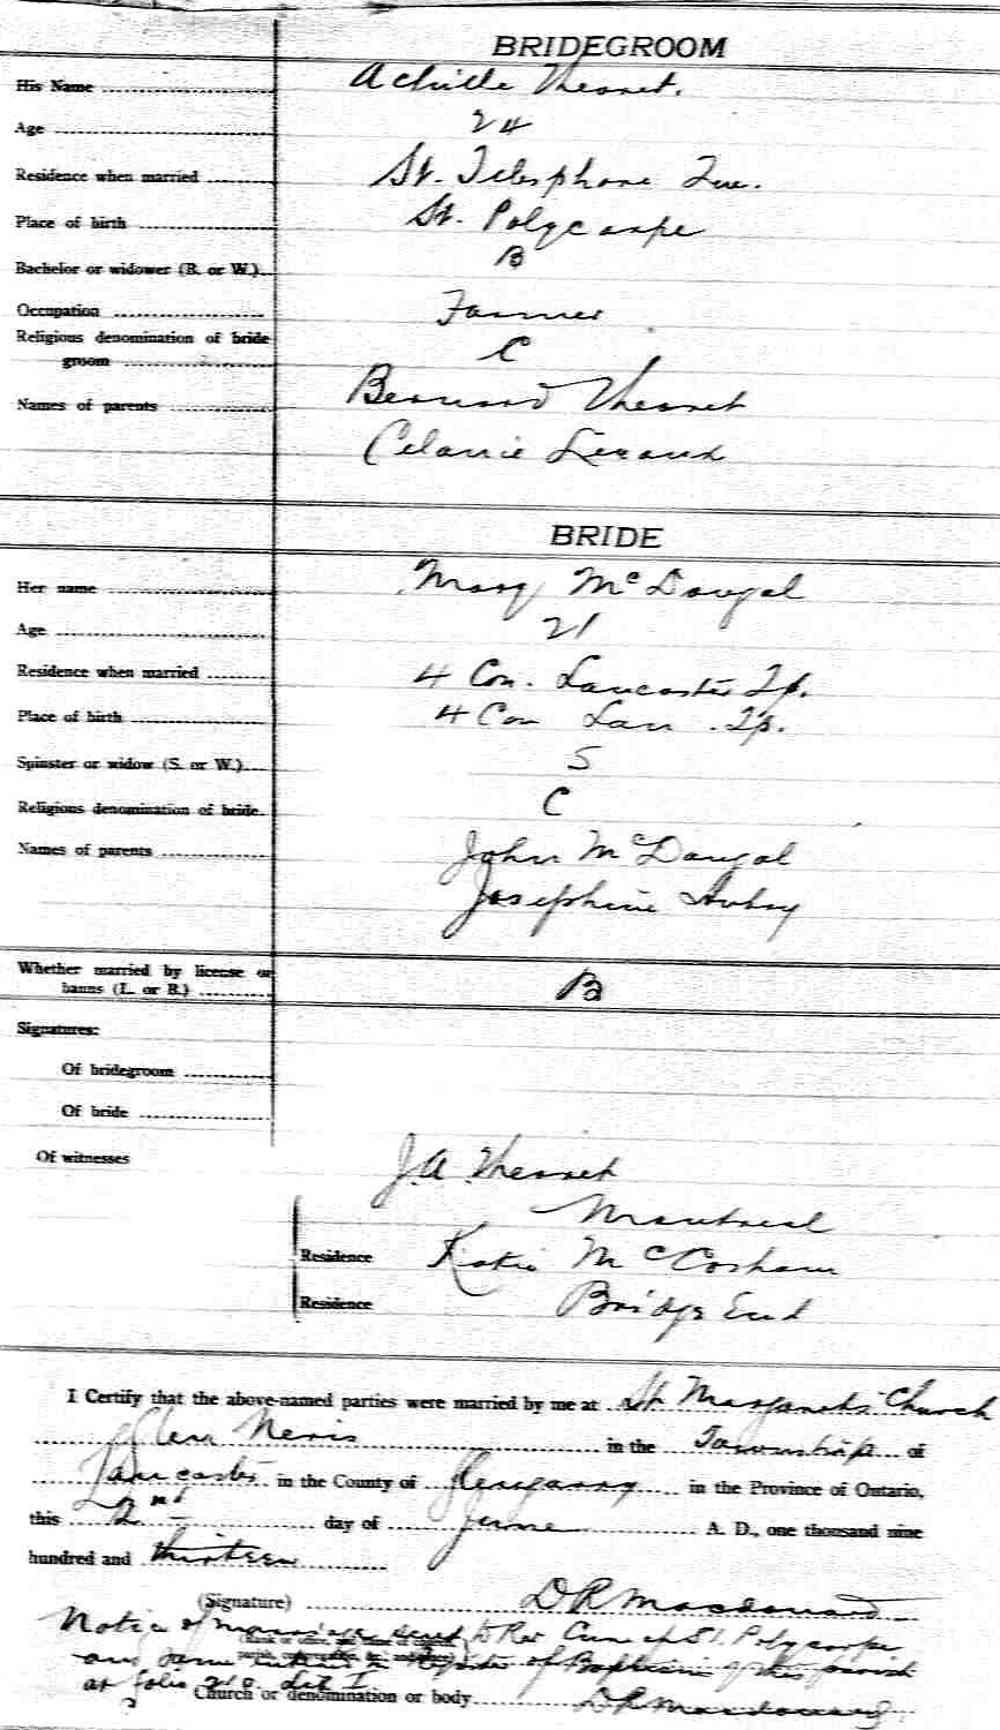 BRIDEGROOM
His Name Achille Thesnet.
Age 24
Residence when married St. Telesphore Que.
Place of birth St. Polycarpe
Bachelor or widower (B. or W.) B
Occupation Farmer
Religious denomination of bride
groom C
Names of parents Bernard Thesnet
Celanie
BRIDE
Her name Mary McDougal
Age 21
Residence when married 4 Con. Lancaster Tp.
Place of birth 4 Con Lan. Tp.
Spinster or widow (S. or W.) S
Religious denomination of bride C
Names of parents John McDougal
Josephine Aubry
Whether married by license or
banns (L. or B.) B
Signatures:
Of bridegroom
Of bride
Of witnesses J.A. Thesnet
Montreal
Residence Katie McCosham
Residence Bridge End
I Certify that the above-named parties were married by me at St Margarets Church
Glen Nevis in the Township of
Lancaster in the County of Glengarry in the Province of Ontario,
this 2nd day of June A. D., one thousand nine
hundred and thirteen
(Signature) D R Macdonald
Notice of marriage sent to Rev Cure of St. Polycarpe
and same entered in Register of Baptisms of this parish
at folio
Church or denomination or body D R Macdonald